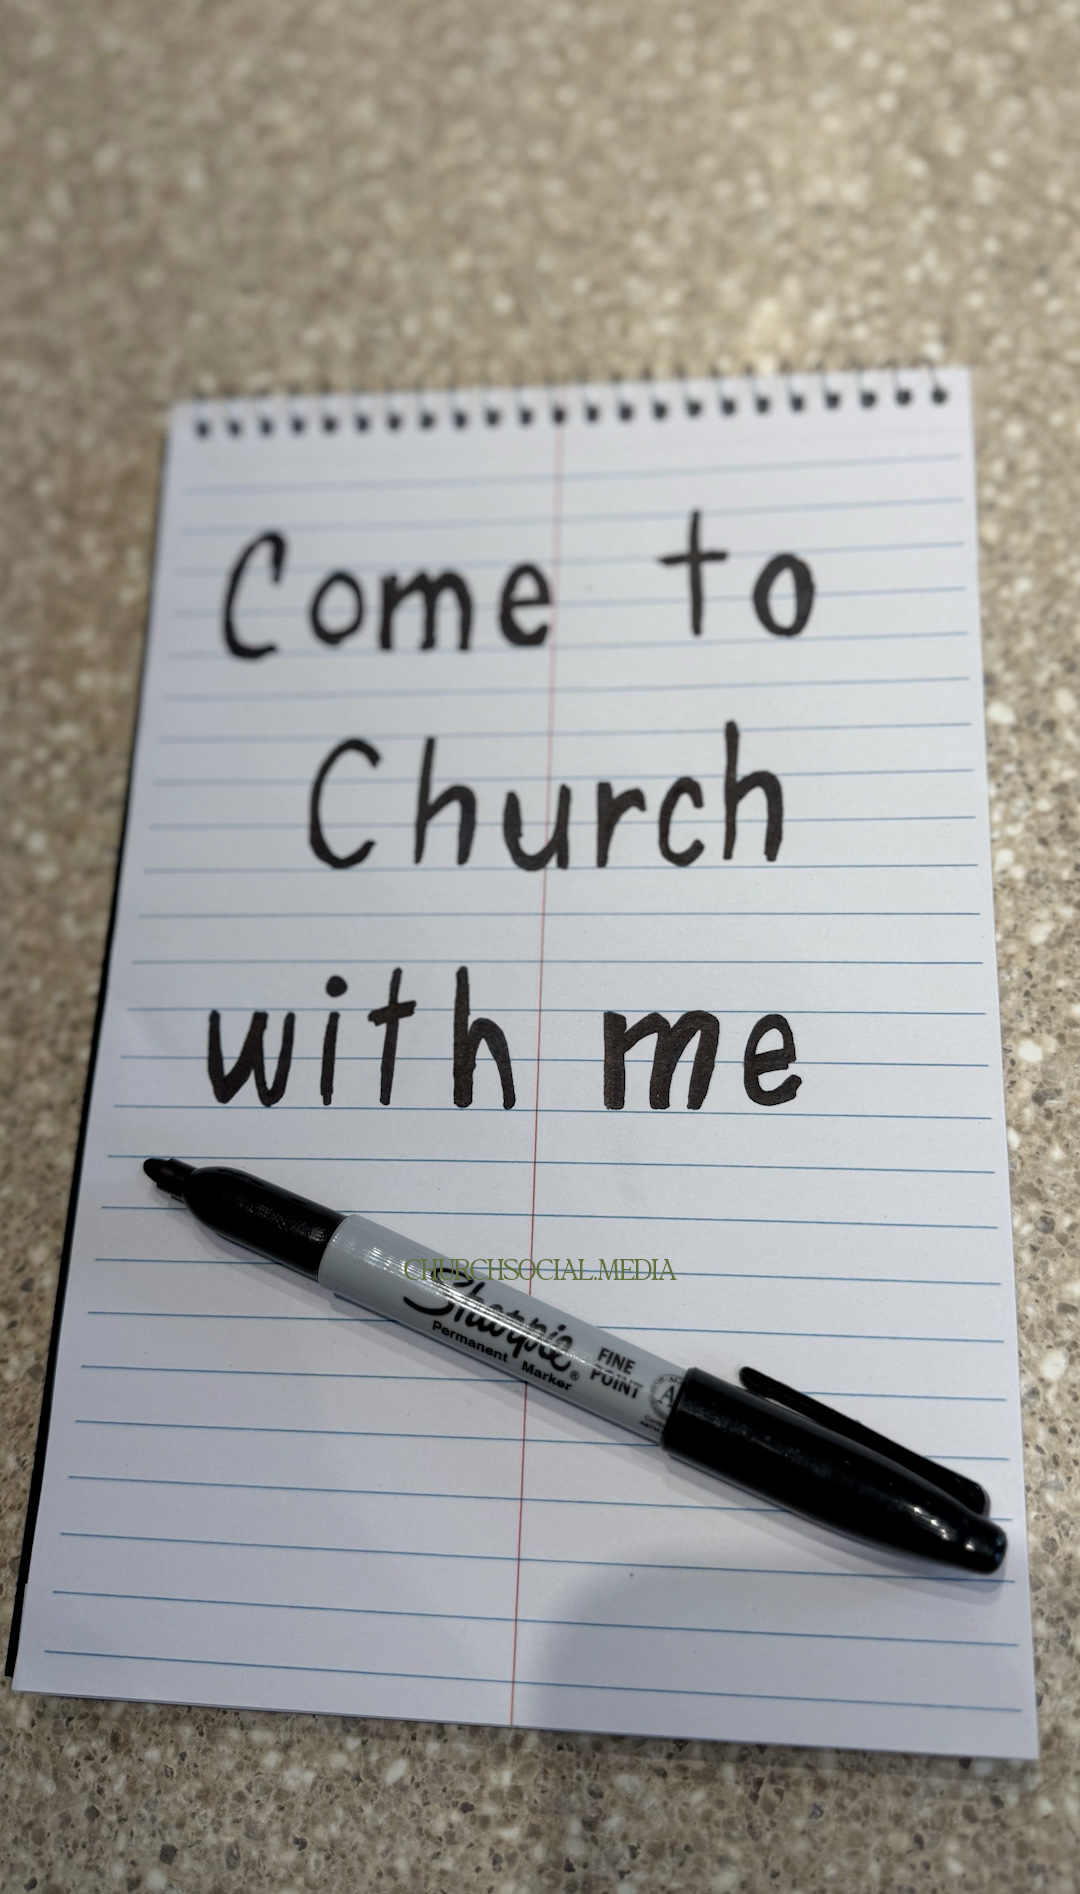 Come to
Church
with me
CHURCHSOCIAL.MEDIA
Sharpie®
Permanent Marker
FINE
POINT